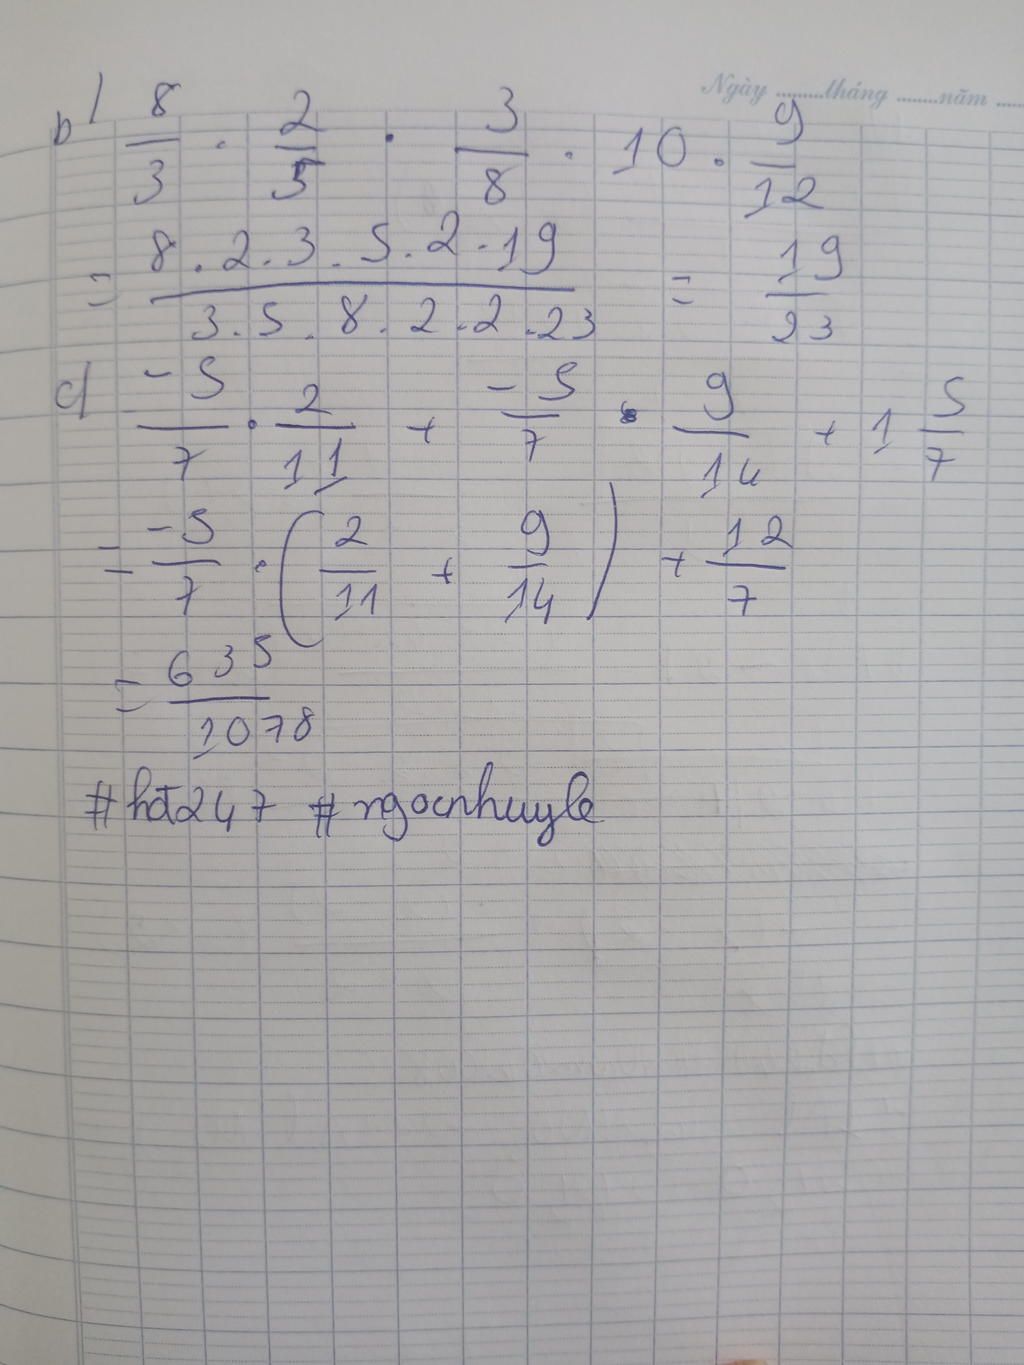 Ngày ........tháng ........năm .....
b) 8/3 . 2/5 . 3/8 . 10 . 9/12
= 8.2.3.5.2.19 / 3.5.8.2.2.23 = 19/23
d) -5/7 . 2/11 + -5/7 . 9/14 + 1 5/7
= -5/7 . (2/11 + 9/14) + 12/7
= 635/1078
#hđ247 #ngocnhuyle